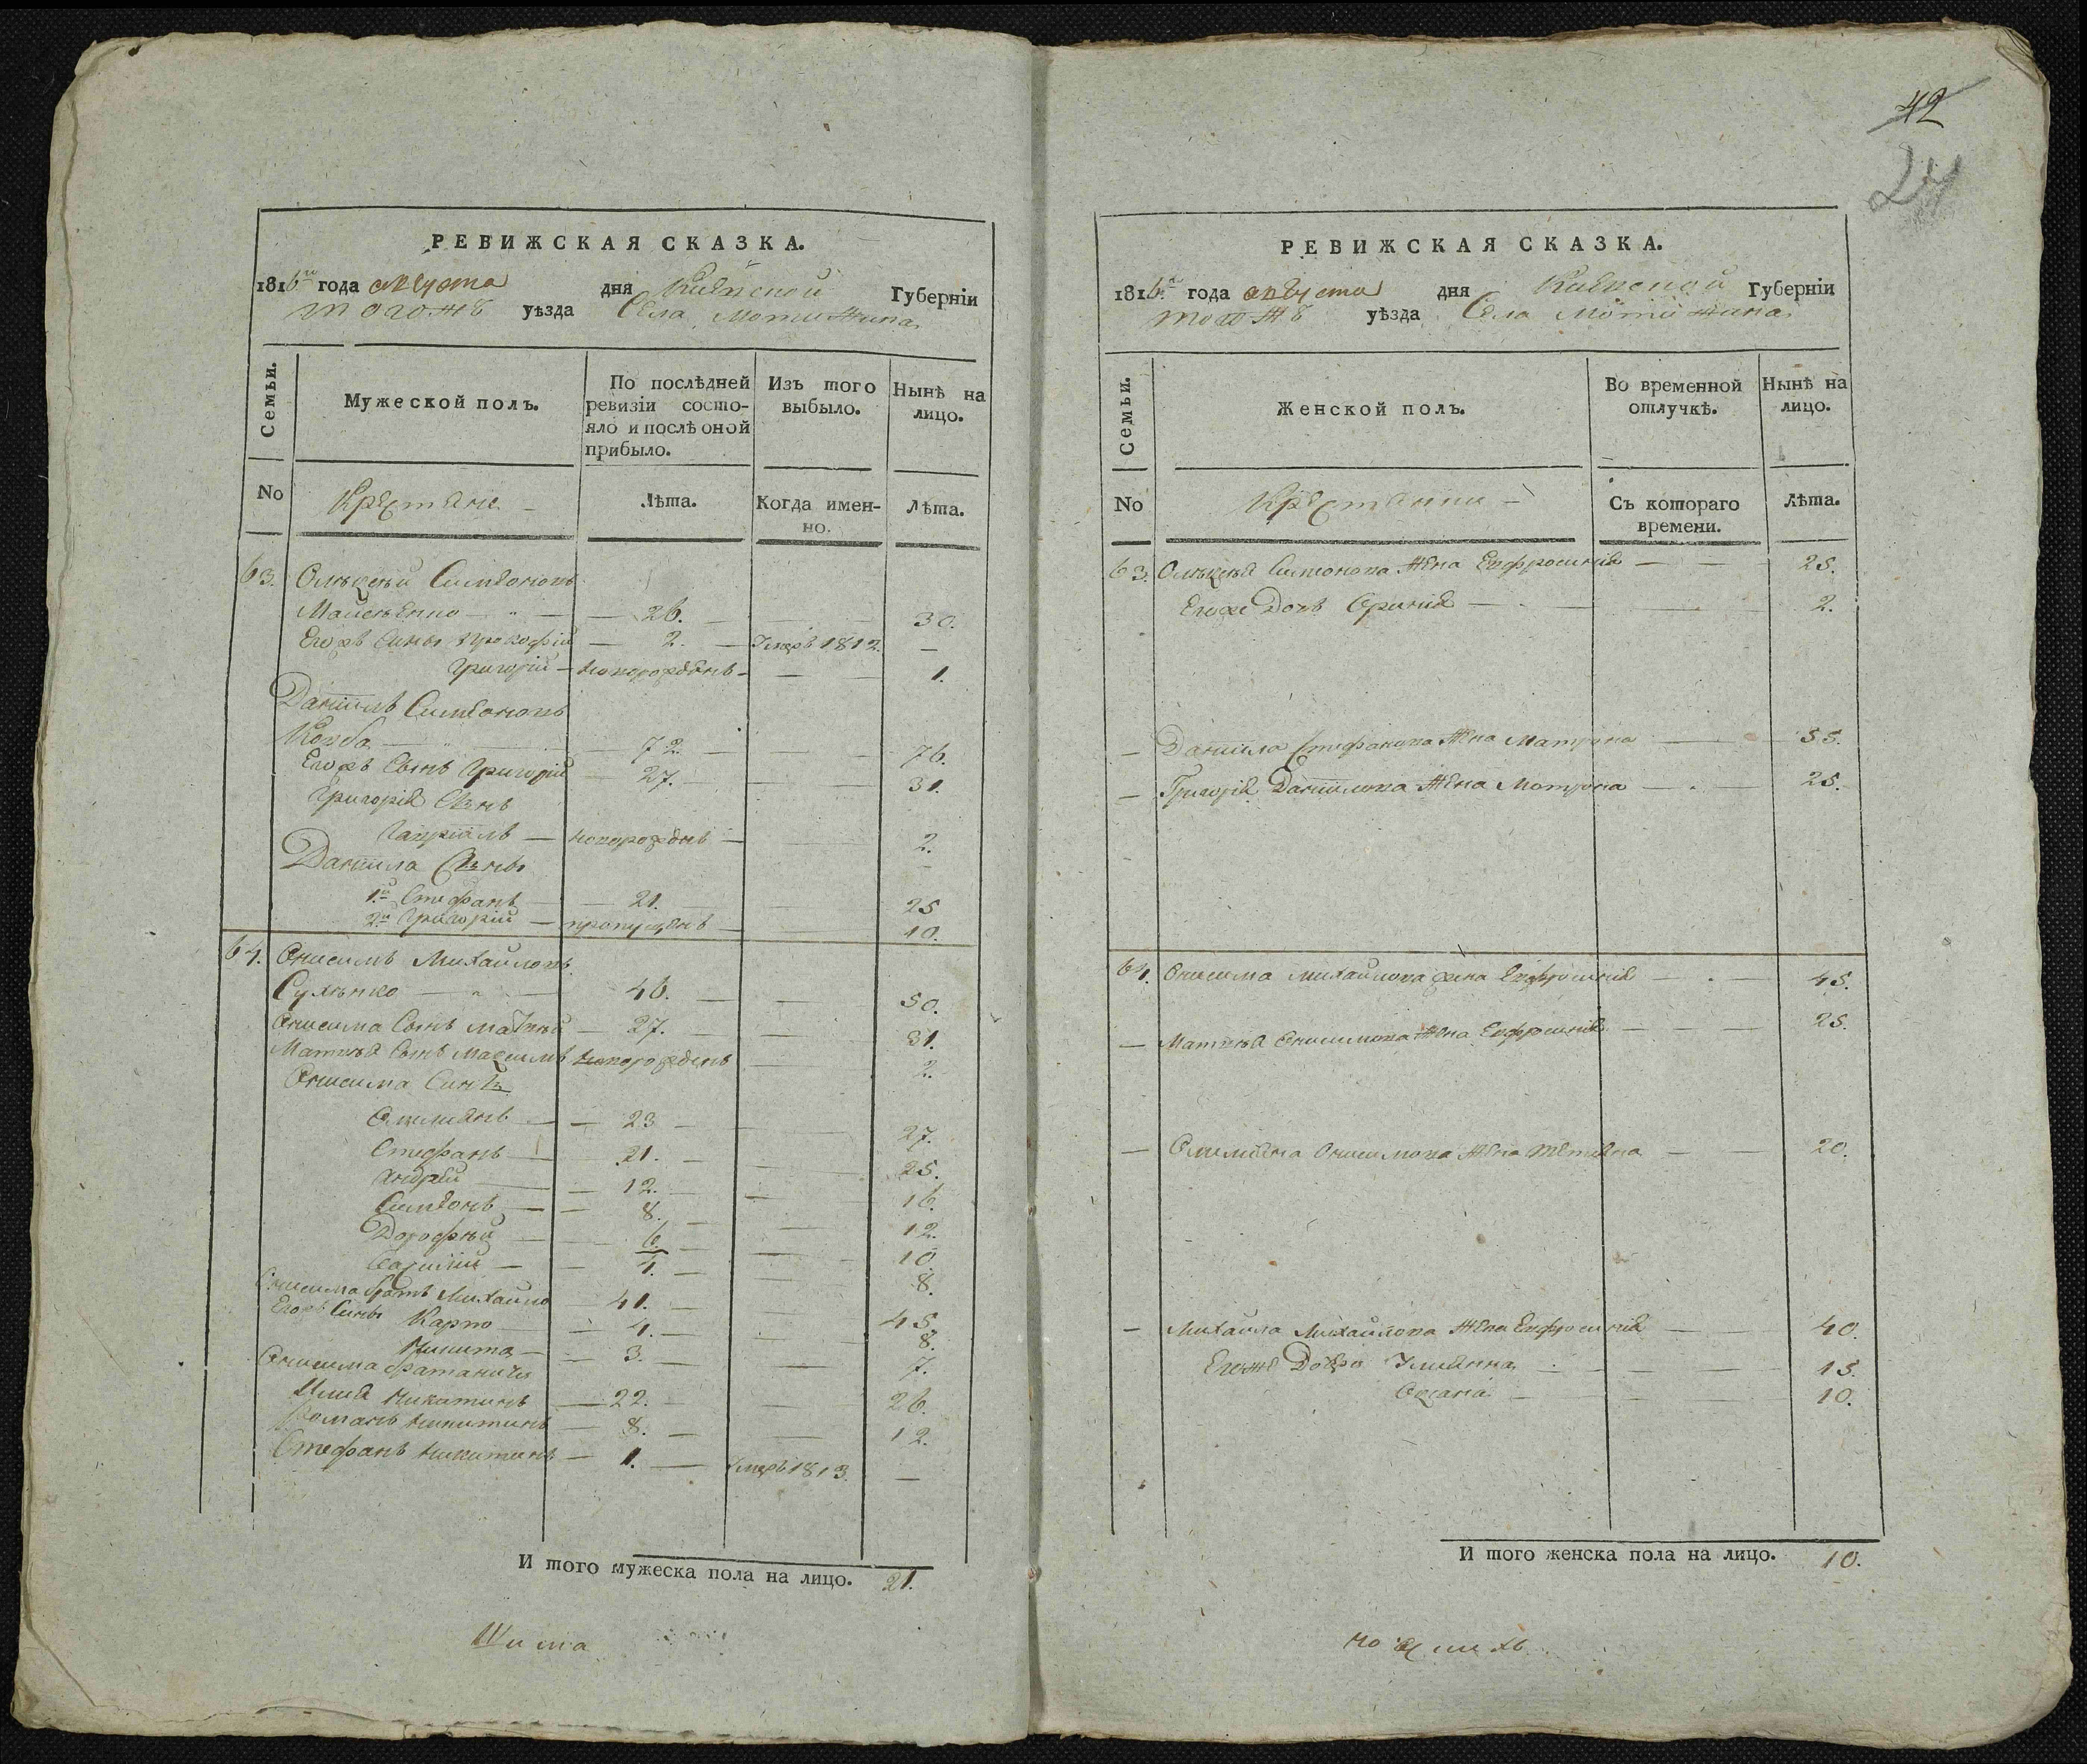 РЕВИЖСКАЯ СКАЗКА.
1816го года августа дня Киевской Губерніи
тогожъ уѣзда Села Мотижина
Семьи. Мужеской полъ. По послѣдней ревизіи состояло и послѣ оной прибыло. Изъ того выбыло. Нынѣ на лицо.
No Крестяне Лѣта. Когда именно. Лѣта.
63. Олѣксѣй Симеоновъ
26. 30.
Егожъ сины Прокофій — 2. — Умеръ 1812. —
Григорій — новорожденъ — 1.
Даніилъ Симеоновъ
72. 76.
Егожъ Сынъ Григорій — 27. 31.
Григорія Сынъ
Гавріилъ — новорожденъ — 2.
Даніила Сыны
1й Стефанъ — 21. 25
2й Григорій — пропущенъ — 10.
64. Онисимъ Михайловъ
Сухѣнко — 46. 50.
Онисима Сынъ Матвѣй — 27. 31.
Матвѣя Сынъ Максимъ новорожденъ 2.
Онисима Сины
Омилиянъ — 23 27.
Стефанъ — 21. 25.
Андрей — 12. 16.
Симеонъ — 8. 12.
Дорофѣй — 6 10.
4. 8.
Онисима братъ Михайло — 41. 45.
Егожъ Сины Карпо — 4. 8.
Никита — 3. 7.
Онисима братаничи
Илия Никитинъ — 22. 26.
Романъ Никитинъ — 8. 12.
Стефанъ Никитинъ — 1. — Умеръ 1813. —
И того мужеска пола на лицо. 21.
42
РЕВИЖСКАЯ СКАЗКА.
1816го года августа дня Киевской Губерніи
тогожъ уѣзда Села Мотижина
Семьи. Женской полъ. Во временной отлучкѣ. Нынѣ на лицо.
No Крестянки — Съ котораго времени. Лѣта.
63. Олѣксѣя Симеонова Жена Евфросинія — 25.
Егоже Дочь — 2.
— Даниила Стефанова Жена Матрона — 55.
— Григорія Даніилова Жена Мотрона — 25.
64. Онисима Михайлова жена Евфросинія — 45.
— Матвѣя Онисимова Жена Евфросинія — 25.
— Омилияна Онисимова Жена Тетяна — 20.
— Михайла Михайлова Жена Евфросинія — 40.
Егоже Дочери Улияна — 15.
10.
И того женска пола на лицо. 10.